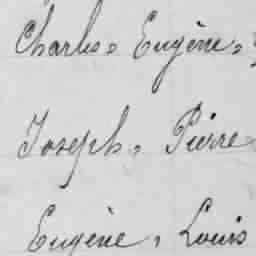 Charles, Eugène,
Joseph, Pierre
Eugène, Louis